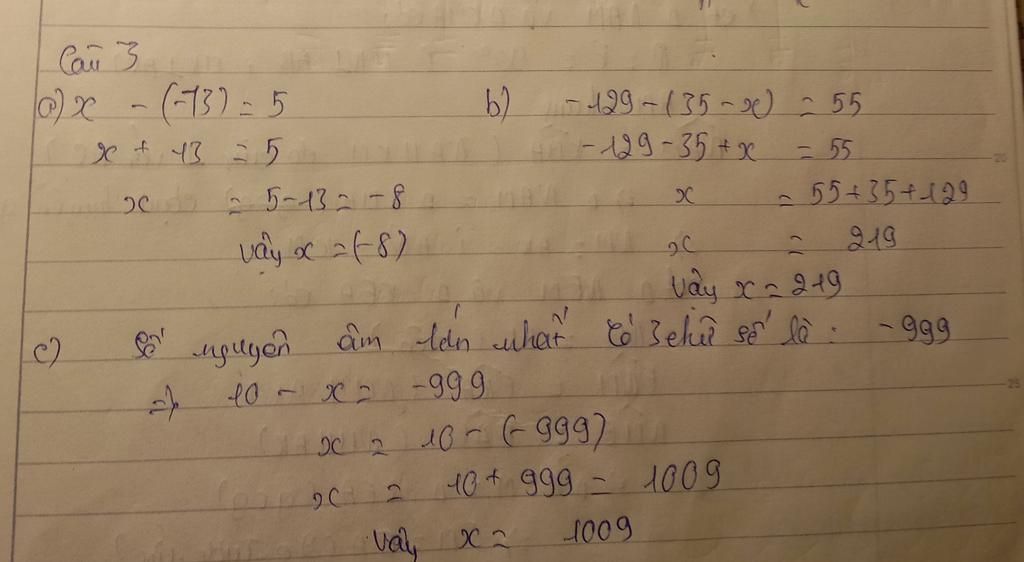 Câu 3
a) x - (-13) = 5
x + 13 = 5
x = 5-13 = -8
vậy x = (-8)
b) -129-(35-x) = 55
-129-35+x = 55
x = 55+35+129
x = 219
vậy x = 219
c) Số nguyên âm lớn nhất có 3 chữ số là: -999
=> 10 - x = -999
x = 10 - (-999)
x = 10 + 999 = 1009
vậy x = 1009
20
25